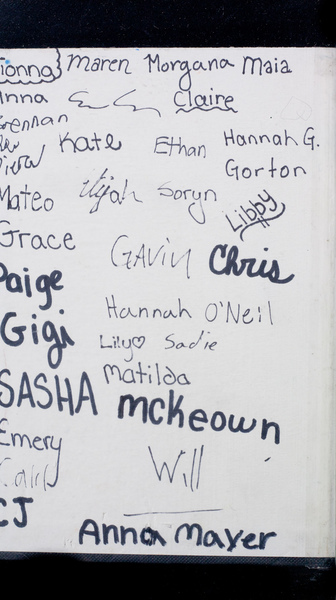 ionna Maren Morgana Maia
Anna Claire
Brennan
Kate Ethan Hannah G.
Gorton
Mateo Elijah Soryn
Libby
Grace GAVIN Chris
Paige
Hannah O'Neil
Gigi Lily♡ Sadie
Matilda
SASHA McKeown
Emery
Will
CJ
Anna Mayer